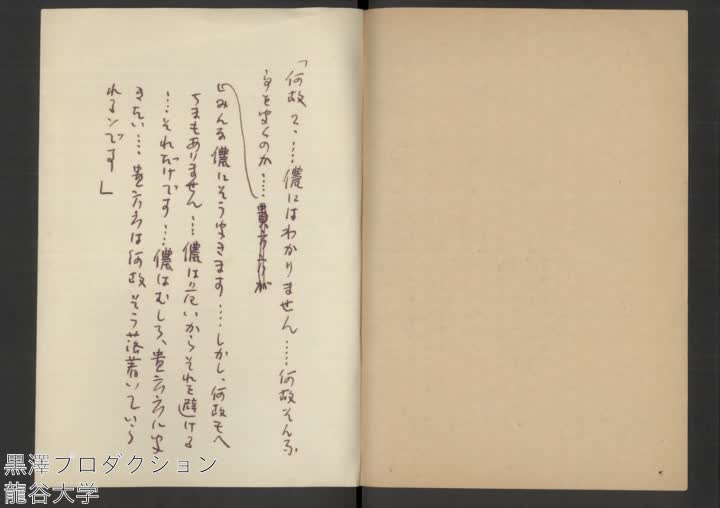 「何故？……儂にはわかりません……何故そんな
事を聞くのか……貴方方が
みんな儂にそう聞きます……しかし、何故もへ
ちまもありません…儂は危いからそれを避ける
……それだけです……儂はむしろ、貴方方に聞
きたい……貴方方は何故そう落着いていら
れるンです」
黒澤プロダクション
龍谷大学